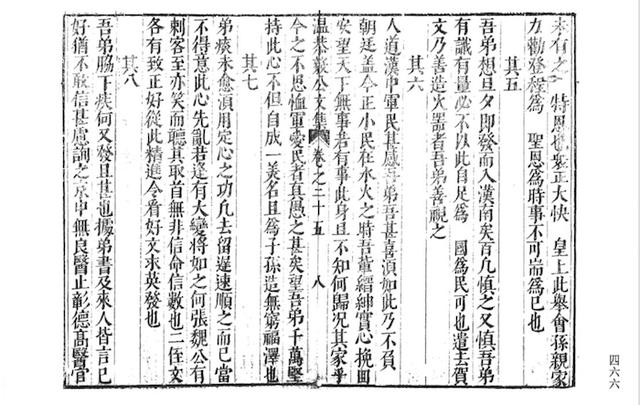 未有之 特恩也聖正大快 皇上此舉會孫親家
力勸登程爲 聖恩爲時事不可耑爲已也
其五
吾弟想旦夕即發而入漢南矣百凡慎之又慎吾弟
有識有量必不以此自足爲 國爲民可也遣去賀
文乃善造火器者吾弟善視之
其六
人道漢中軍民甚感吾弟吾甚喜湏如此乃不負
朝廷蓋今正小民在水火之時吾輩縉紳實心挽回
安望天下無事若有事此身且不知何歸况其家乎
温恭毅公文集 卷之三十五 八
今之不恩恤軍愛民者真愚之甚矣望吾弟千萬堅
持此心不但自成一美名且爲子孫造無窮福澤也
其七
弟痰永愈湏用定心之功凡去留遲速順之而已當
不得意此心先亂若逢有大變將如之何張魏公有
刺客至亦笑而聽其取首無非信命信數也二侄文
各有致正好從此精進今看好文求英發也
其八
吾弟脇下疾何又發且甚也據弟書及來人皆言已
好猶不敢信甚慮詢之永中無良醫止彰德高醫官
四六六